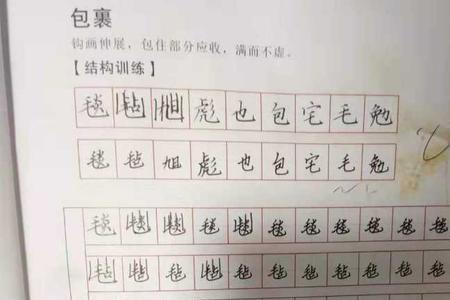 包裹
钩画伸展,包住部分应收,满而不虚。
【结构训练】
毯毡旭彪也包宅毛勉
毯毡旭彪也包宅毛勉
毯毯毯毯毯毯毯毯毯毯毯
毡毡毡毡毡毡毡毡毡毡毡